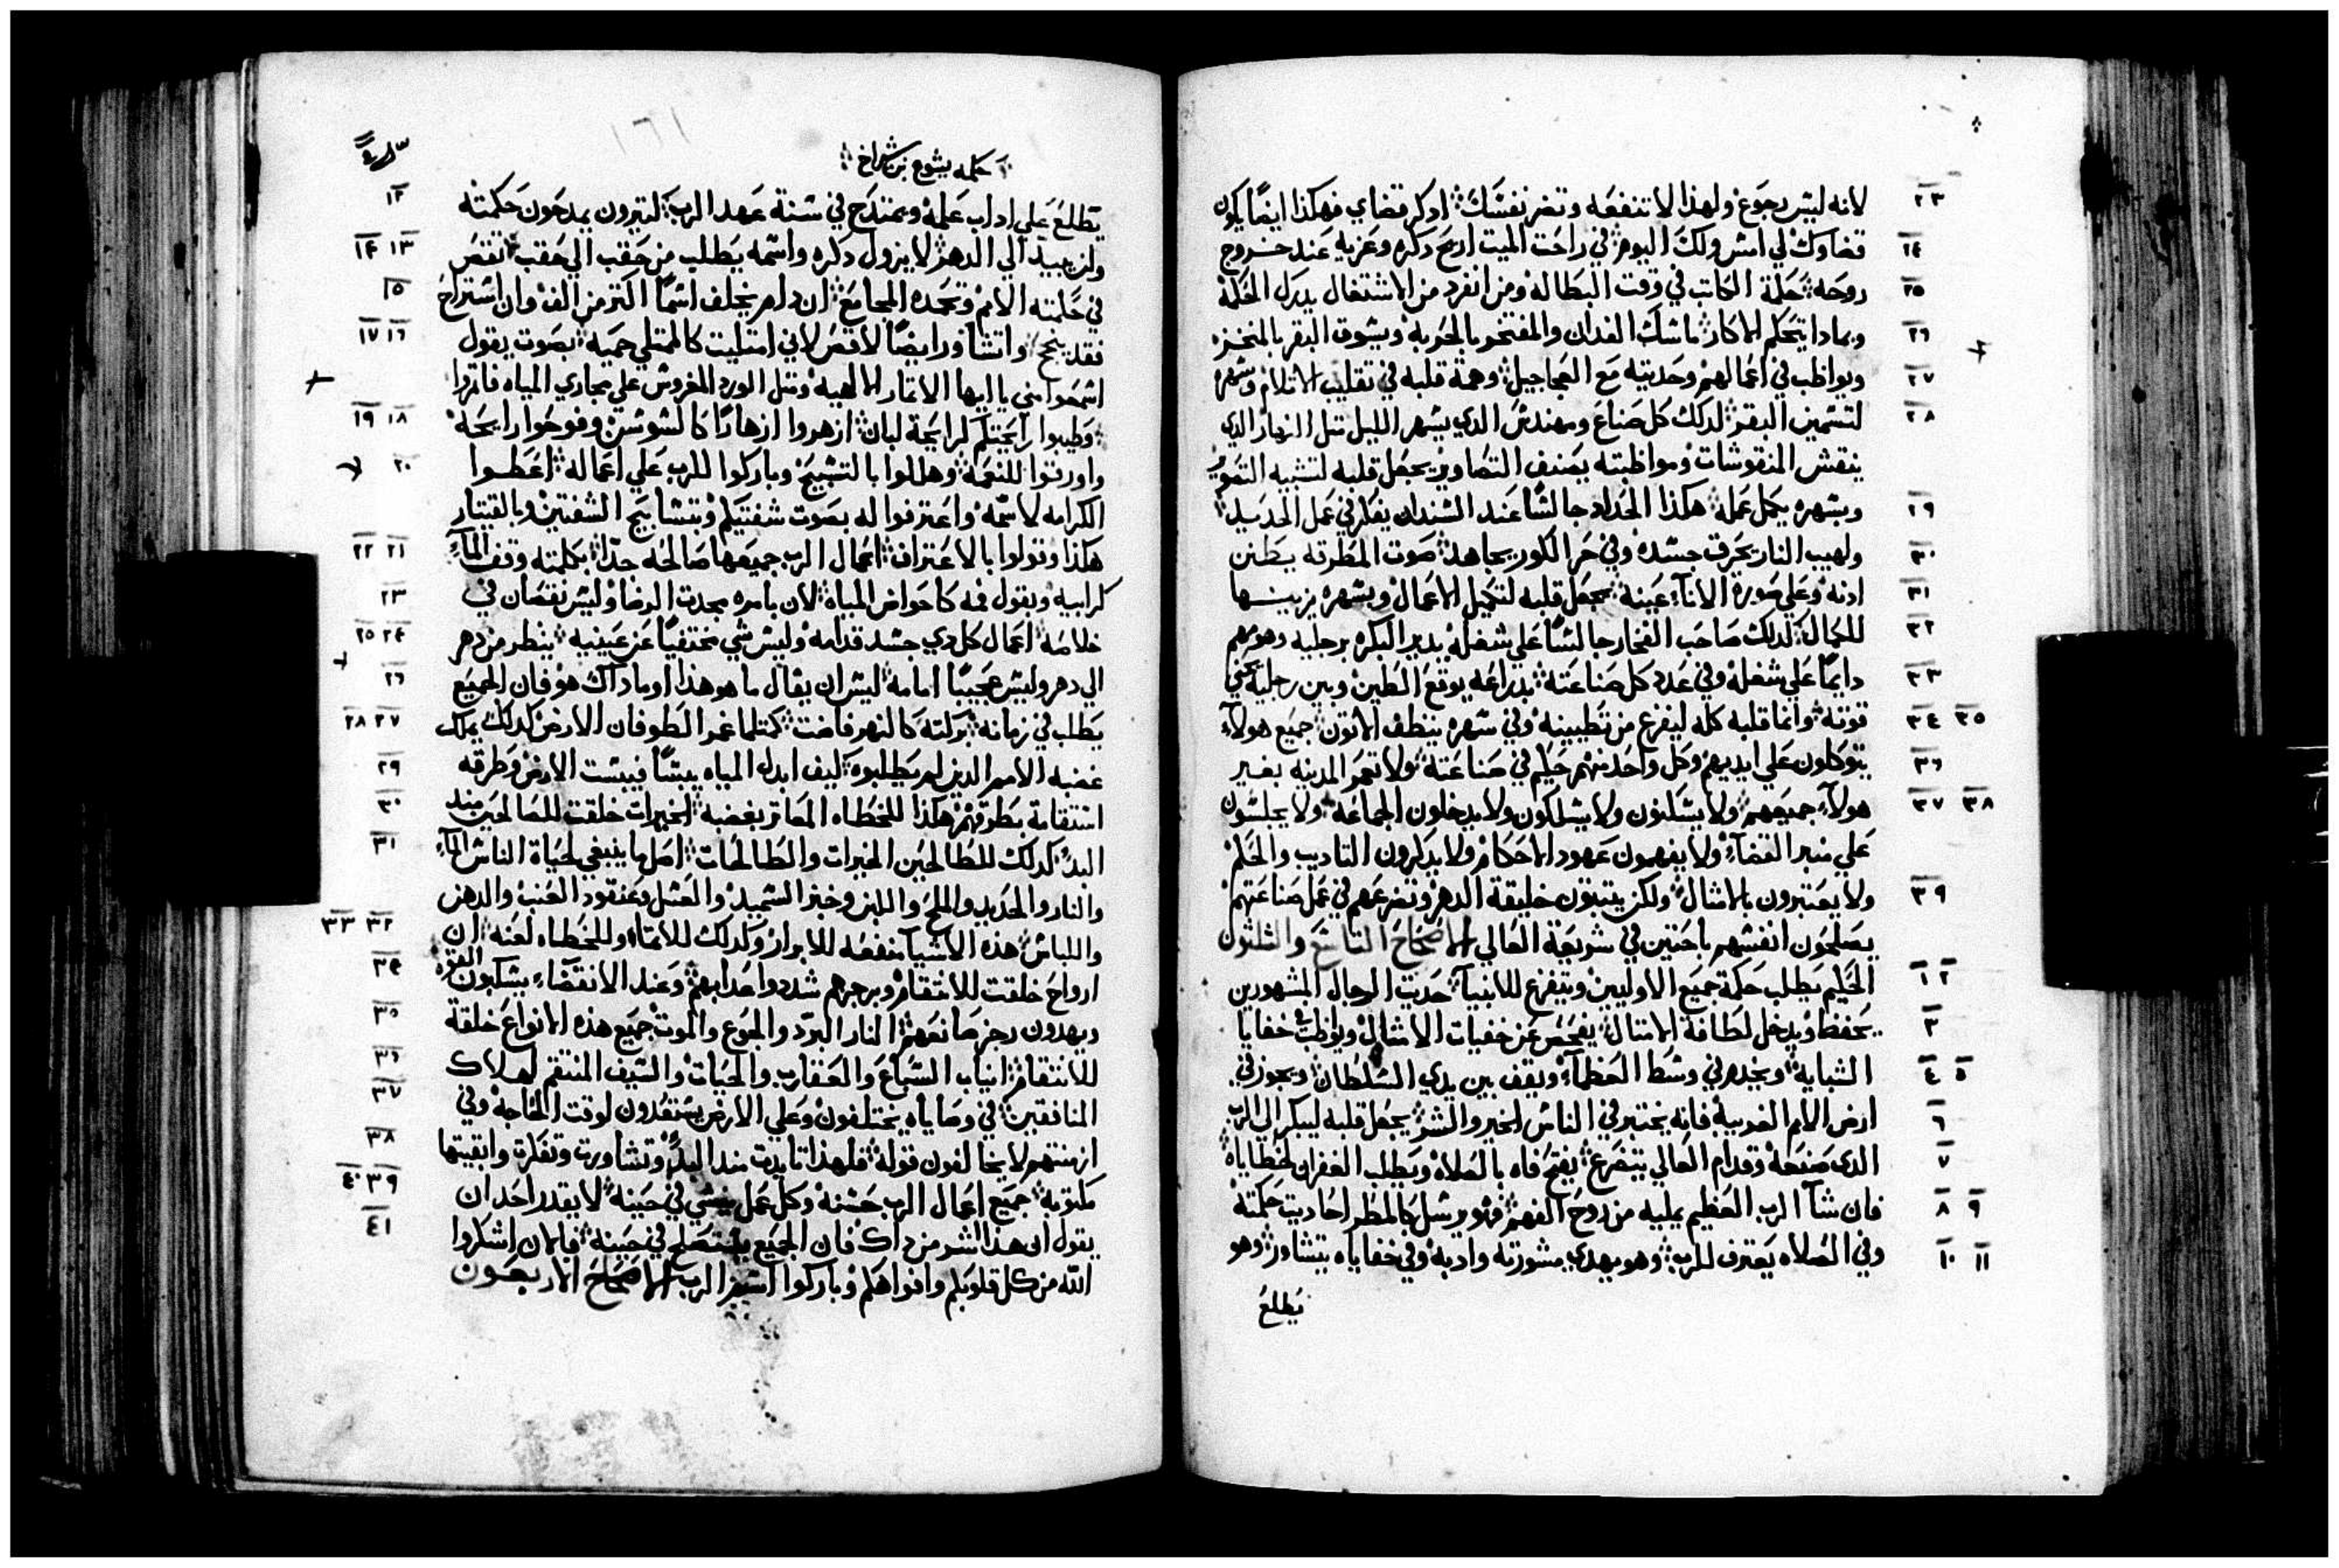 ٢٣ لانه ليس رجوع ولهذا لا تنفعه وتضر نفسك اذكر قضاي فهكذا ايضًا يكون
٢٤ قضاوك لي امس ولك اليوم في راحت الميت ارح ذكره وعزيه عند خروج
٢٥ روحه حكمة الكاتب في وقت البطاله ومن انفرد من الاشتغال يدرك الحكمة
٢٦ وبماذا يتحكم الاكار ماسك الفدان والمفتخر بالحربه ويسوق البقر بالمنخز
٢٧ ويواظب في اعمالهم وحديته مع العجاجيل وهمة قلبه في تقليب الاتلام وسهره
٢٨ لتسمين البقر لدلك كل صناع ومهندس الدي يسهر الليل متل النهار الدي
ينقش المنقوشات ومواظبته يصنف التصاوير يجعل قلبه لتشبيه التصوير
٢٩ وبسهره يكمل عمله هكذا الحداد جالسًا عند السندان يفكر في عمل الحديد
٣٠ ولهيب النار يحرق جسده وفي حر الكور يجاهد صوت المطرقه يطنن
٣١ ادنه وعلي صورة الاناء عينه يجعل قلبه لتكميل الاعمال وبسهره يزينها
٣٢ للكمال كدلك صاحب الفخار جالسًا علي شغله يدير البكره برجليه وهو مهم
٣٣ دايمًا علي شغله وفي عدد كل صناعته بدراعه يوقع الطين وبين رجليه يحني
٣٤ ٣٥ قوته وانما قلبه كله ليفرغ من تطيينه وفي سهره ينظف الاتون جميع هولاء
٣٦ يتوكلون علي ايديهم وكل واحد منهم حكيم في صناعته ولا تعمر المدينه بغير
٣٧ ٣٨ هولاء جميعهم ولا يسكنون ولا يسلكون ولا يدخلون الجماعه ولا يجلسون
علي منبر القضاء ولا يفهمون عهود الاحكام ولا يدكرون التاديب والحكم
٣٩ ولا يعتبرون بالامثال ولكن يتبتون خليقة الدهر وتضرعهم في عمل صناعتهم
يصلحون انفسهم باحتين في شريعة العالي الاصحاح التاسع والثلثون
١ ٢ الحكيم يطلب حكمة جميع الاوليين ويتفرغ للانبياء حديت الرجال المشهورين
٣ يحفظ ويدخل لطافة الامتال يفحص عن خفيات الامتال ويواظب في خفايا
٤ ٥ التشابيه ويخدم في وسط العظماء ويقف بين يدي السلطان ويجوز في
٦ ارض الامم الغريبه فانه يختبر في الناس الخير والشر يجعل قلبه ليبكر الي الرب
٧ الدي صنعه وقدام العالي يتضرع يفتح فاه بالصلاه ويطلب الغفران لخطاياه
٨ ٩ فان شاء الرب العظيم يمليه من روح الفهم فهو يرسل كالمطر احاديت حكمته
١٠ ١١ وفي الصلاه يعترف للرب وهو يهدي مشورته وادبه وفي خفاياه يتشاور وهو
يطلع
١٦١
حكمه يشوع بن شيراخ
١٢ يطلع علي اداب علمه ويمتدح في سنة عهد الرب كتيرون يمدحون حكمته
١٣ ١٤ ولن يبيد الي الدهر لا يزول دكره واسمه يطلب من حقب الي حقب تقص
١٥ في حكمته الامم وتمجده المجامع ان دام يخلف اسمًا اكتر من الف وان استراح
١٦ ١٧ فقد ينجح واتشاور ايضًا لاقص لاني امتليت كالممتلي حميه بصوت يقول
اسمعوا مني يا ايها الاتمار الالهيه ومتل الورد المغروس علي مجاري المياه فاتمروا
١٨ ١٩ وطيبوا رايحتكم لرايحة لبان ازهروا ازهارًا كالسوسن وفوحوا رايحه
٢٠ واورقوا للنعمه وهللوا بالتسبيح وباركوا للرب علي اعماله اعطوا
الكرامه لاسمه واعترفوا له بصوت شفتيكم وبتسابيح الشفتين وبالقيتار
٢١ ٢٢ هكذا وقولوا بالاعتراف اعمال الرب جميعها صالحه جدًا بكلمته وقف الماء
٢٣ كرابيه وبقول فمه كاحواض المياه لان بامره يحدت الرضا وليس نقصان في
٢٤ ٢٥ خلاصه اعمال كل دي جسد قدامه وليس شي مختفيًا عن عينيه ينظر من دهر
٢٦ الي دهر وليس عجيبًا امامه ليس ان يقال ما هو هذا او ما داك هو فان الجميع
٢٧ ٢٨ يطلب في زمانه بركته كالنهر فاضت كمتلما غمر الطوفان الارض كدلك يملك
٢٩ غضبه الامم الدين لم يطلبوه كيف ابدل المياه يبسًا فيبست الارض وطرقه
٣٠ استقامة بطرقهم هكذا للخطاه المعاتر بغضبه الخيرات خلقت للصالحين مند
٣١ البدء كدلك للطالحين الخيرات والطالحات اصل ما ينبغي لحياة الناس الماء
والنار والحديد والملح واللبن وخبز السميد والعسل وعنقود العنب والدهن
٣٢ ٣٣ واللباس هذه الاشياء منفعه للابرار وكدلك للاتماء وللخطاه لعنه ان
٣٤ ارواح خلقت للانتقام وبرجزهم شددوا عدابهم وعند الانقضاء يسكبون القوه
٣٥ ويهدون رجز صانعهم النار البرد والجوع والموت جميع هذه الانواع خلقة
٣٦ للانتقام انياب السباع والعقارب والحيات والسيف المنتقم لهلاك
٣٧ المنافقين في وصاياه يختلفون وعلي الارض يستعدون لوقت الحاجة وفي
٣٨ ازمنتهم لا يخالفون قوله فلهذا تايدت مند البدء وتشاورت وتفكرت وابقيتها
٣٩ ٤٠ مكتوبه جميع اعمال الرب حسنه وكل عمل ينشي في حينه لا يقدر احد ان
٤١ يقول ان هذا اشر من داك فان الجميع يستصلح في حينه فالان اشكروا
الله من كل قلوبكم وافواهكم وباركوا اسم الرب الاصحاح الاربعون